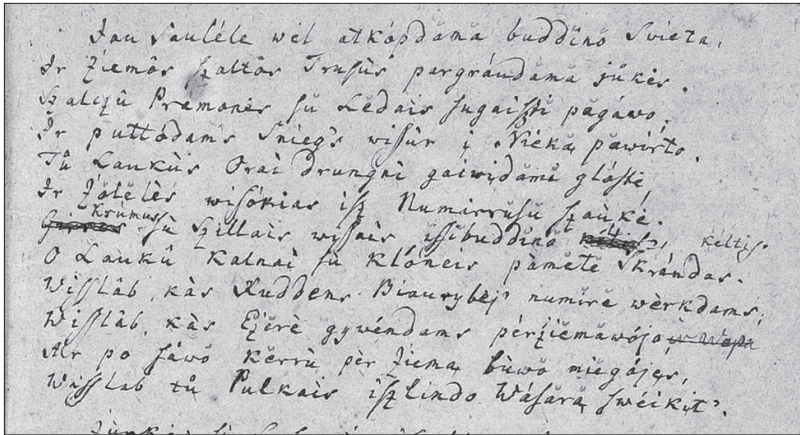 Jau Saulėle wėl atkópdămă buddĭnŏ Svieta,
Ir Źiemôs Sźaltôs Trusùs pargráudămă jŭkės.
Szalczû Pramonės sŭ Lĕdais sugaiszti pàgáwo;
Ir puttódams Sniegs wissùr į Nieką pàwìrto.
Tŭ Laukùs Orai drungni gaiwįdămi glóstė,
Ir Źólĕlės wisókias isz Numirrusŭ szaukė.
Krūmus sŭ Szillais wissais iszsibuddĭnŏ kéltis.
O Laukŭ Kalnai sŭ Klóneis pàmĕtė Skrándas.
Wisslàb, kàs Ruddens Biaurybėj' numìrė wèrkdams;
Wisslàb, kàs Ežĕrė gywéndams pèrźiĕmăwójo
Ar po sáwŏ Kĕrrŭ pèr Źiemą bùwŏ miĕgójęs,
Wisslàb tŭ Pulkais iszlindo Wásărą sweikįt'.